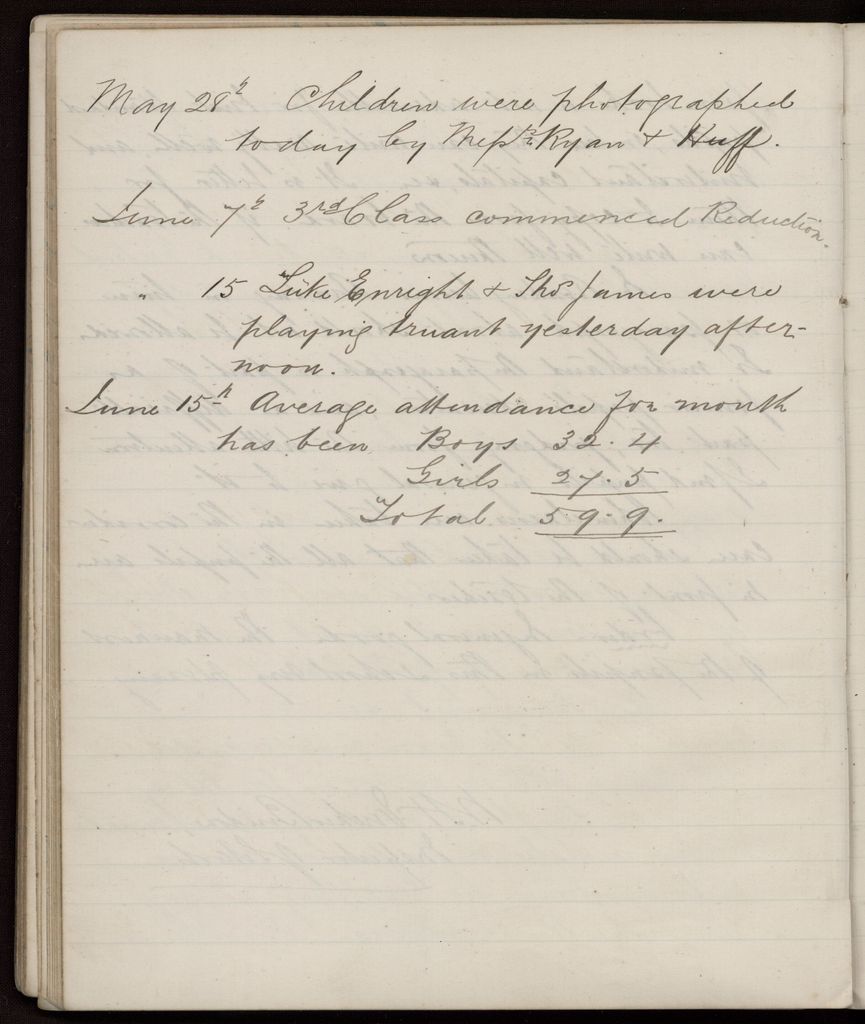 May 28th Children were photographed
today by Messrs Ryan & Huff.
June 7th 3rd Class commenced Reduction.
" 15 Luke Enright & Thos James were
playing truant yesterday after-
noon.
June 15th Average attendance for month
has been Boys 32.4
Girls 27.5
Total 59.9.